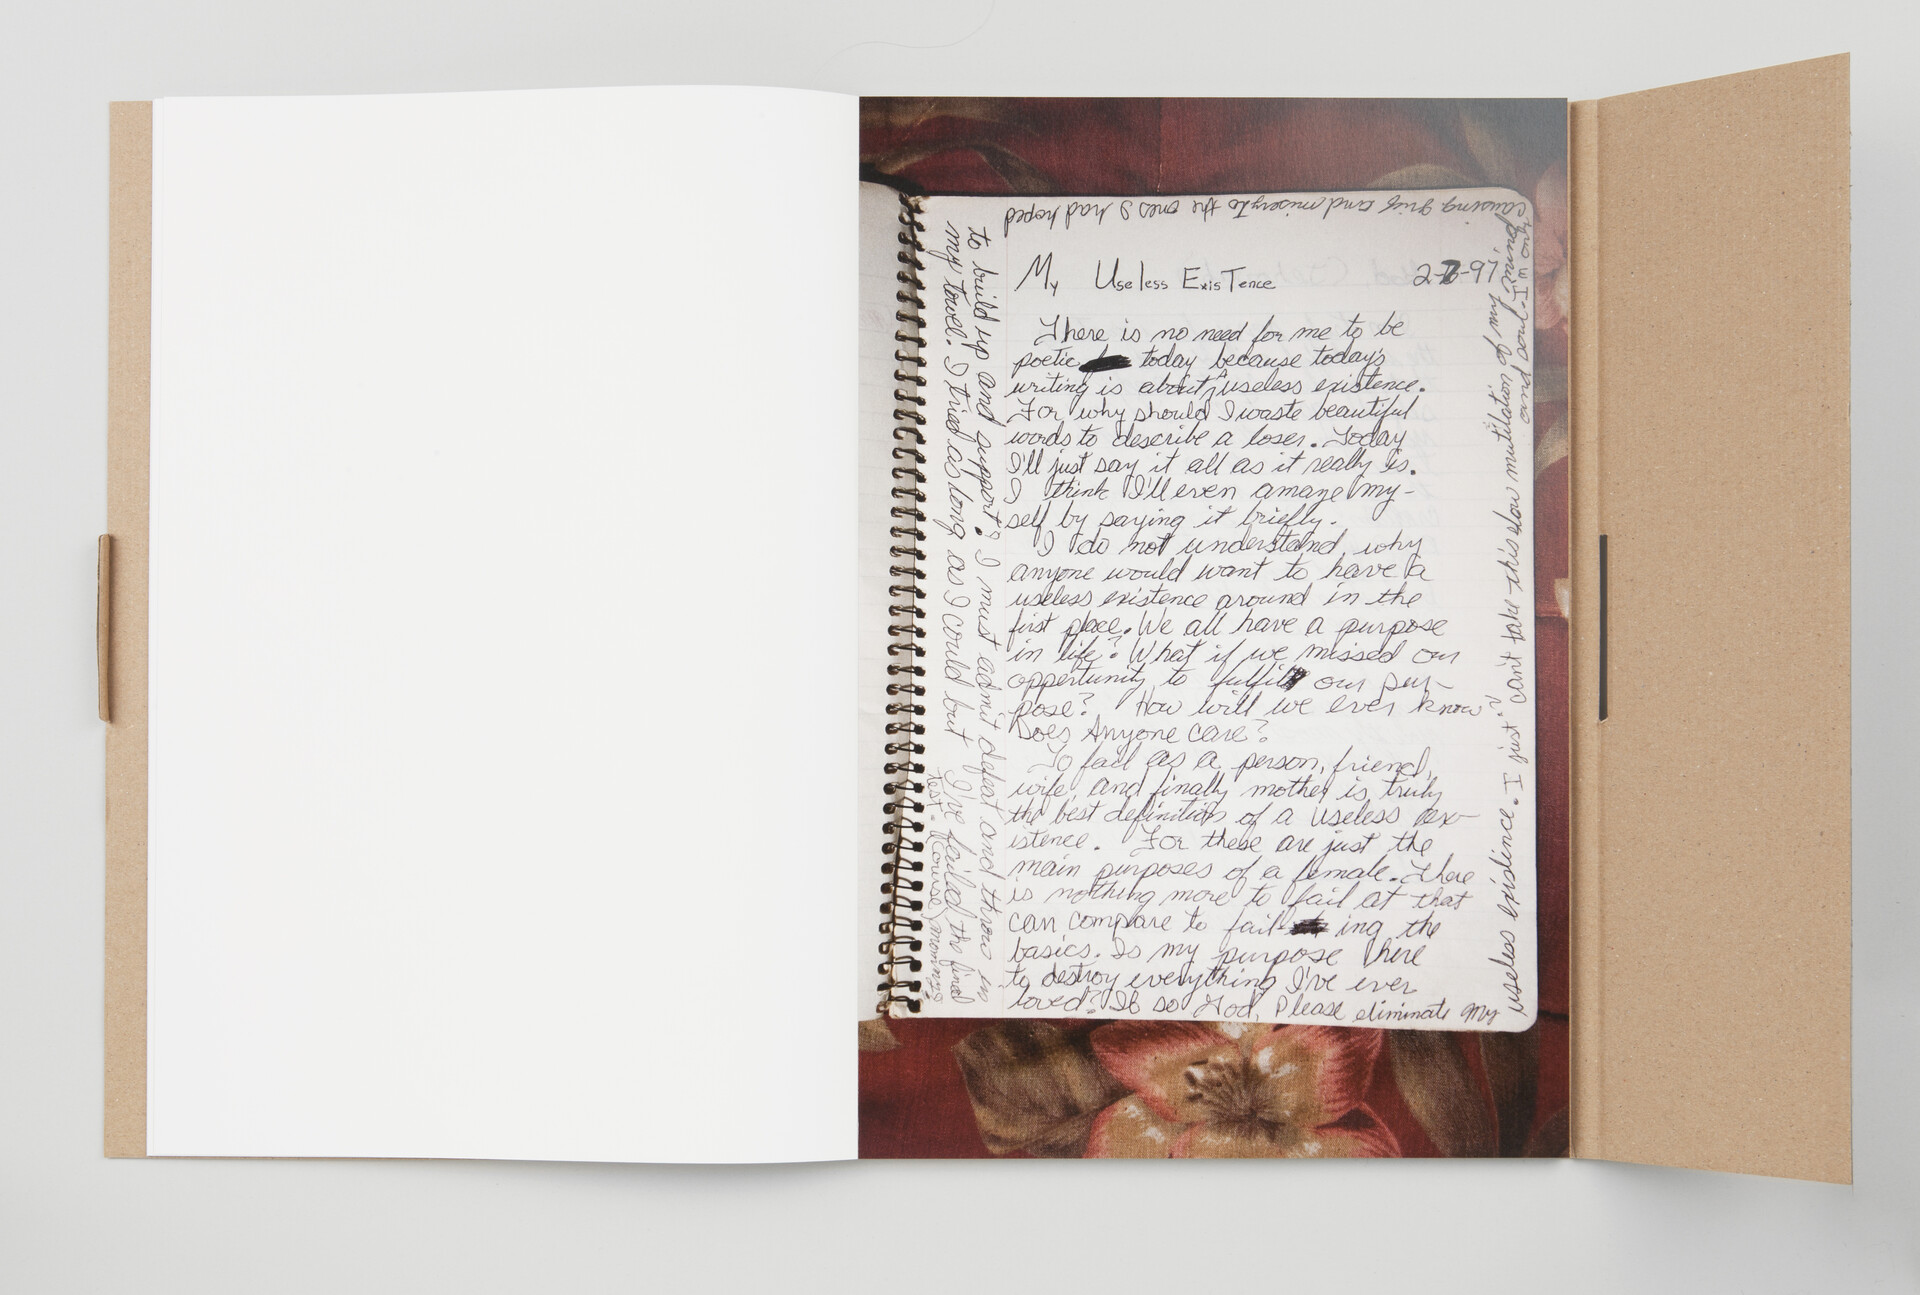 My Useless Existence 2-7-97
There is no need for me to be
poetic today because today's
writing is about useless existence.
For why should I waste beautiful
words to describe a loser. Today
I'll just say it all as it really is.
I think I'll even amaze my-
self by saying it briefly.
I do not understand why
anyone would want to have a
useless existence around in the
first place. We all have a purpose
in life? What if we missed our
opportunity to fulfill our pur-
pose? How will we ever know?
Does Anyone care?
To fail as a person, friend,
wife, and finally mother is truly
the best definition of a useless ex-
istence. For these are just the
main purposes of a female. There
is nothing more to fail at that
can compare to fail-ing the
basics. Is my purpose here
to destroy everything I've ever
loved? If so God, Please eliminate my
useless existince. I just can't take this slow mutilation of my mind
and soul. I'm only
causing grief and misery to the ones I had hoped
to build up and support. I must admit defeat and throw in
my towel. I tried as long as I could but I've failed the final
test.